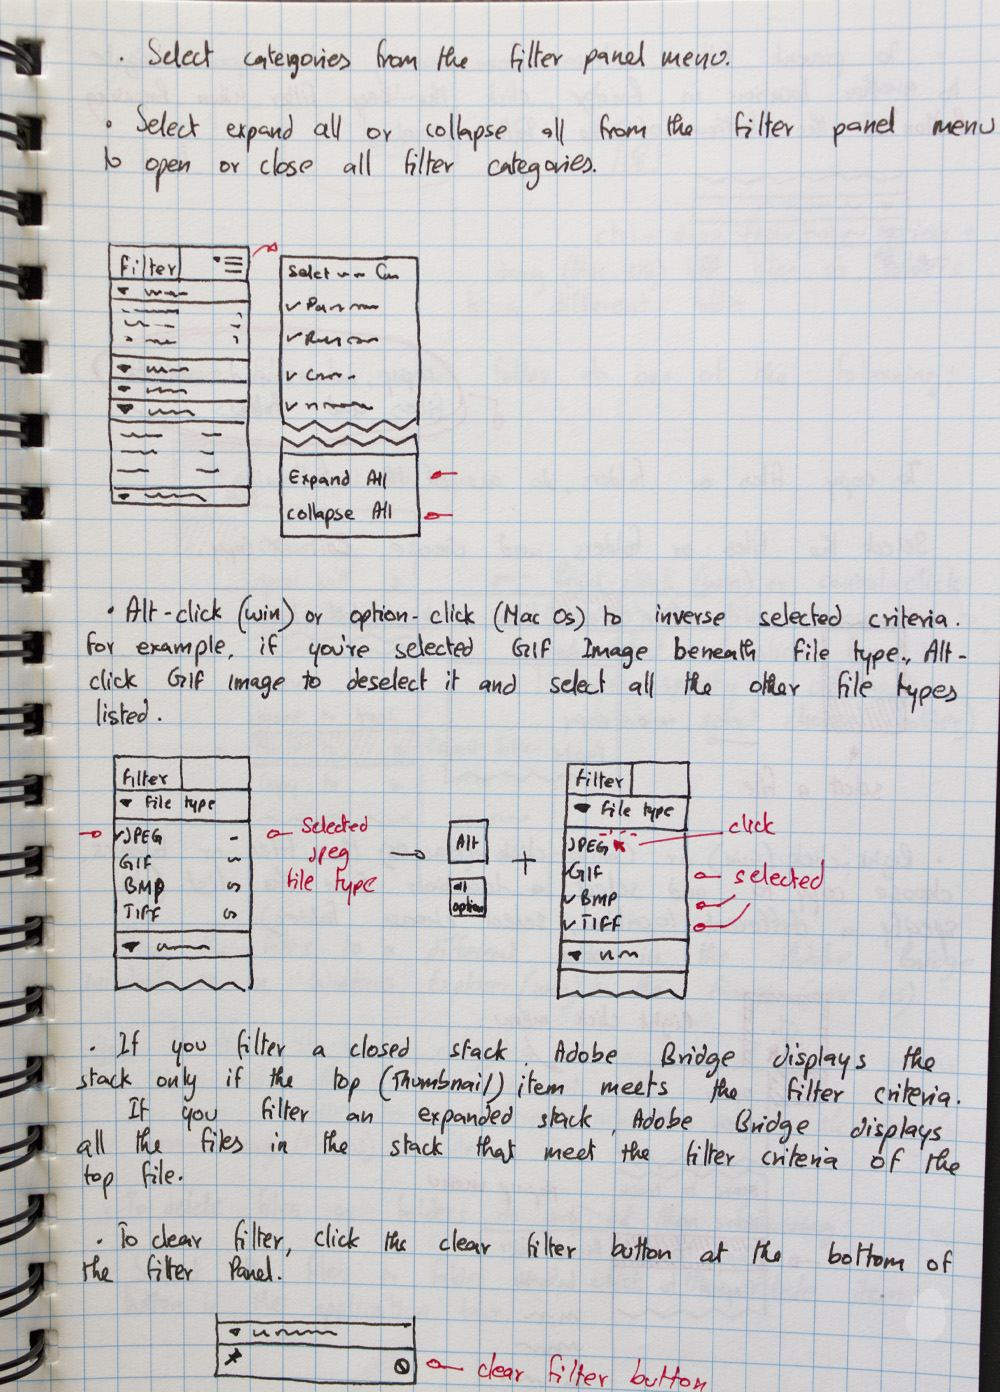 · Select catergories from the filter panel menu.
· Select expand all or collapse all from the filter panel menu
to open or close all filter categories.
Filter
Selct
Expand All
collapse All
· Alt-click (win) or option-click (Mac Os) to inverse selected criteria.
for example, if you're selected GIF Image beneath file type., Alt-
click GIF image to deselect it and select all the other file types
listed.
Filter
file type
✓JPEG
GIF
BMP
TIFF
Selected
Jpeg
file type
Alt
alt
option
+
Filter
file type
JPEG
✓GIF
✓BMP
✓TIFF
click
selected
· If you filter a closed stack, Adobe Bridge displays the
stack only if the top (Thumbnail) item meets the filter criteria.
If you filter an expanded stack, Adobe Bridge displays
all the files in the stack that meet the filter criteria of the
top file.
· To clear filter, click the clear filter button at the bottom of
the filter Panel.
clear filter button